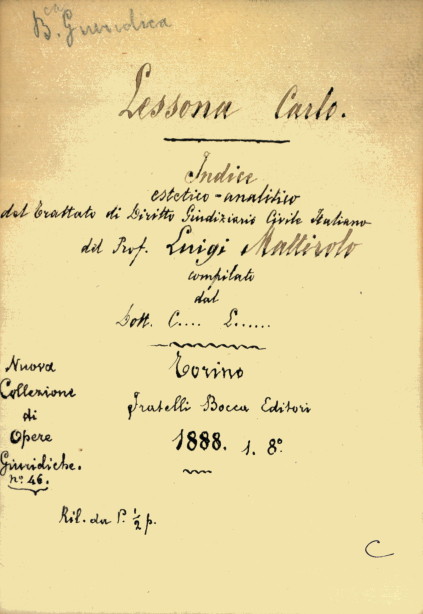 B.ca Giuridica
Lessona Carlo.
Indice
estetico-analitico
del Trattato di Diritto Giudiziario Civile Italiano
del Prof. Luigi Mattirolo
compilato
dal
Dott. C.... L......
Torino
Fratelli Bocca Editori
1888. 1. 8°.
Nuova
Collezione
di
Opere
Giuridiche.
n.° 46.
Ril. da P. ½ p.
C